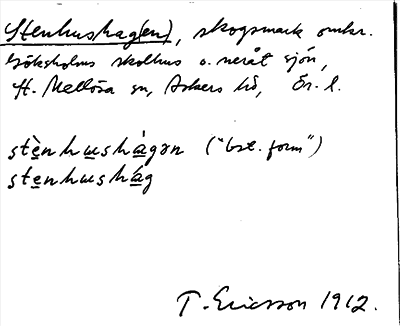 Stenhushag(en), skogsmark omkr.
Göksholms skolhus o. neråt sjön,
St. Mellösa sn, Askers hd, Ör. l.
stènhushàgən ("bst. form")
stenhushag
T. Ericsson 1912.